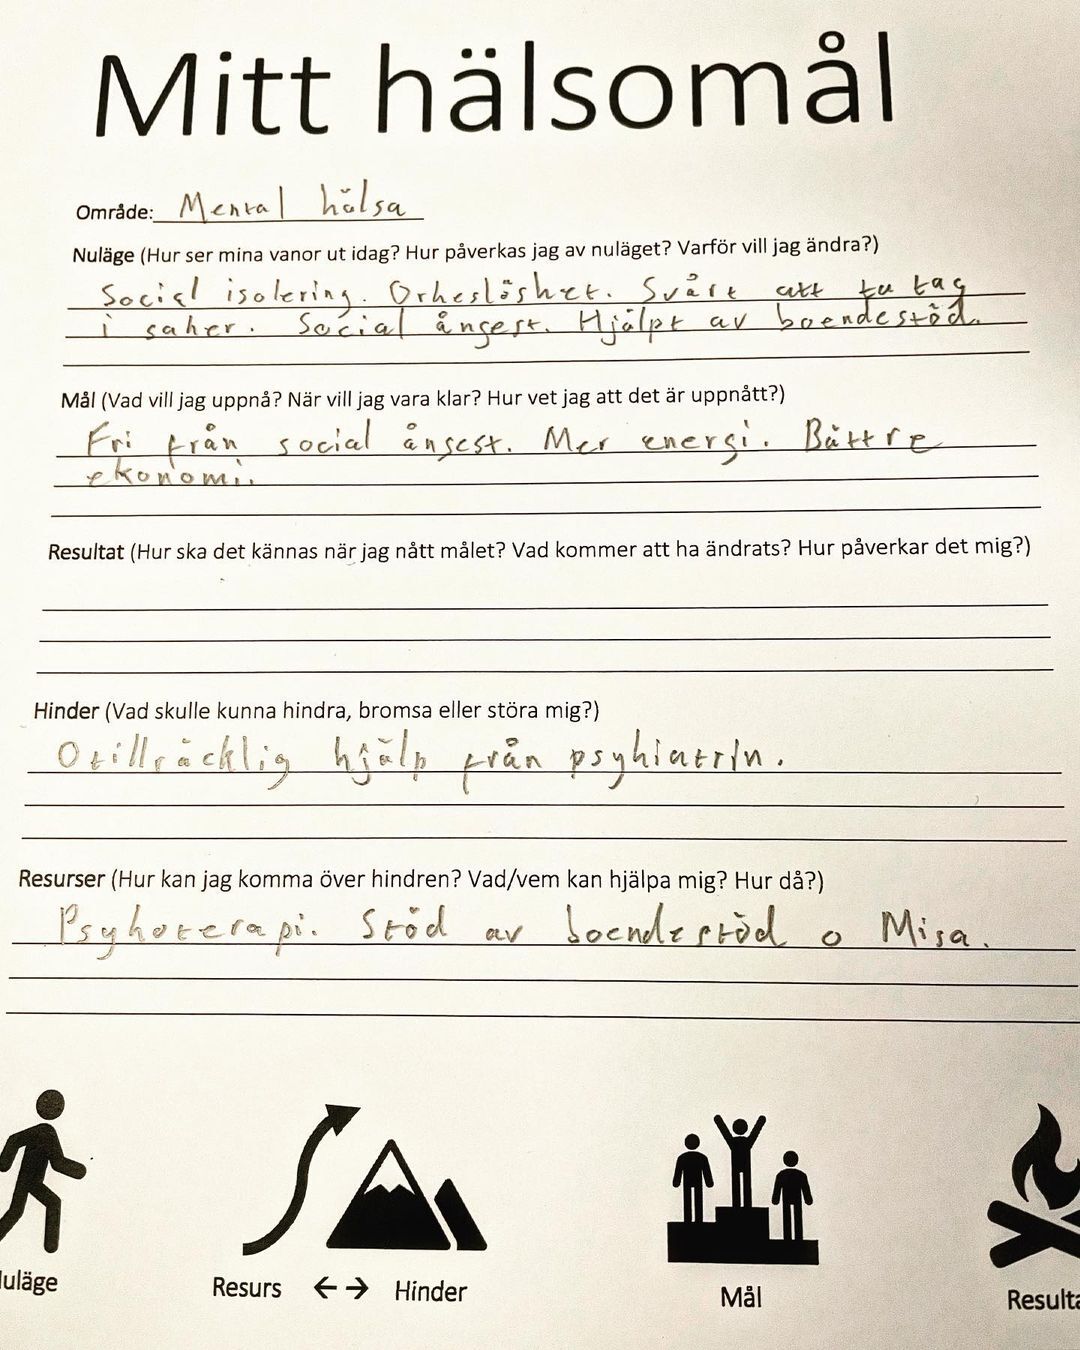 Mitt hälsomål
Område: Mental hälsa
Nuläge (Hur ser mina vanor ut idag? Hur påverkas jag av nuläget? Varför vill jag ändra?)
Social isolering. Orkeslöshet. Svårt att ta tag
i saker. Social ångest. Hjälpt av boendestöd.
Mål (Vad vill jag uppnå? När vill jag vara klar? Hur vet jag att det är uppnått?)
Fri från social ångest. Mer energi. Bättre
ekonomi.
Resultat (Hur ska det kännas när jag nått målet? Vad kommer att ha ändrats? Hur påverkar det mig?)
Hinder (Vad skulle kunna hindra, bromsa eller störa mig?)
Otillräcklig hjälp från psykiatrin.
Resurser (Hur kan jag komma över hindren? Vad/vem kan hjälpa mig? Hur då?)
Psykoterapi. Stöd av boendestöd o Misa.
uläge
Resurs ← → Hinder
Mål
Resulta